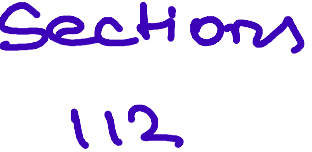 Sections
112